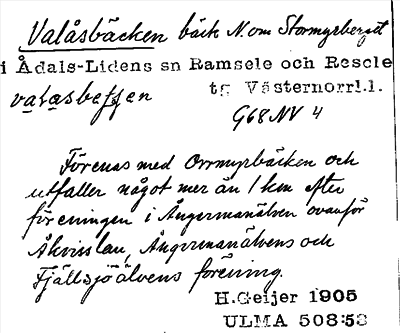 Valåsbäcken bäck N. om Stormyrberget
i Ådals-Lidens sn Ramsele och Resele
valasbeffen tg Västernorrl.l.
968 NV 4
Förenas med Orrmyrbäcken och
utfaller något mer än 1 km efter
föreningen i Ångermanälven ovanför
Ångermanälvens och
Fjällsjöälvens förening.
H.Geijer 1905
ULMA 508:53